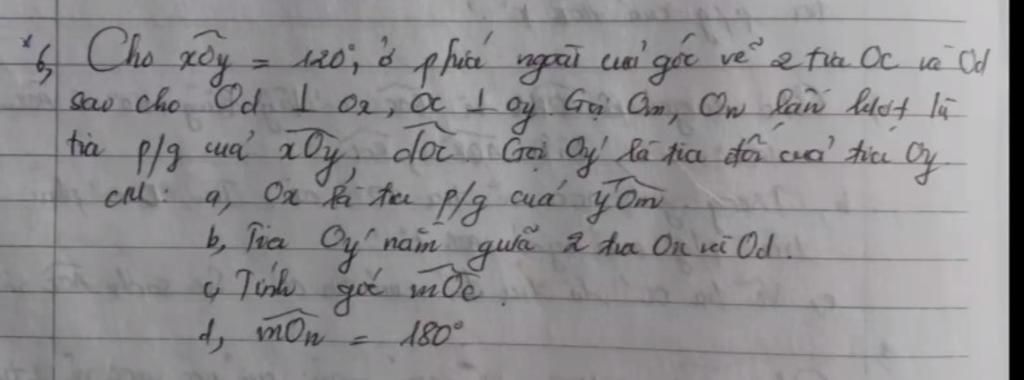 *
6, Cho xOy = 120°, ở phía ngoài của góc vẽ 2 tia Oc và Od
sao cho Od ⊥ Ox, Oc ⊥ Oy Gọi Om, On lần lượt là
tia p/g của xOy, dOc Gọi Oy' là tia đối của tia Oy
CM: a, Ox là tia p/g của y'Om
b, Tia Oy' nằm giữa 2 tia On và Od.
c, Tính góc mOc.
d, mOn = 180°